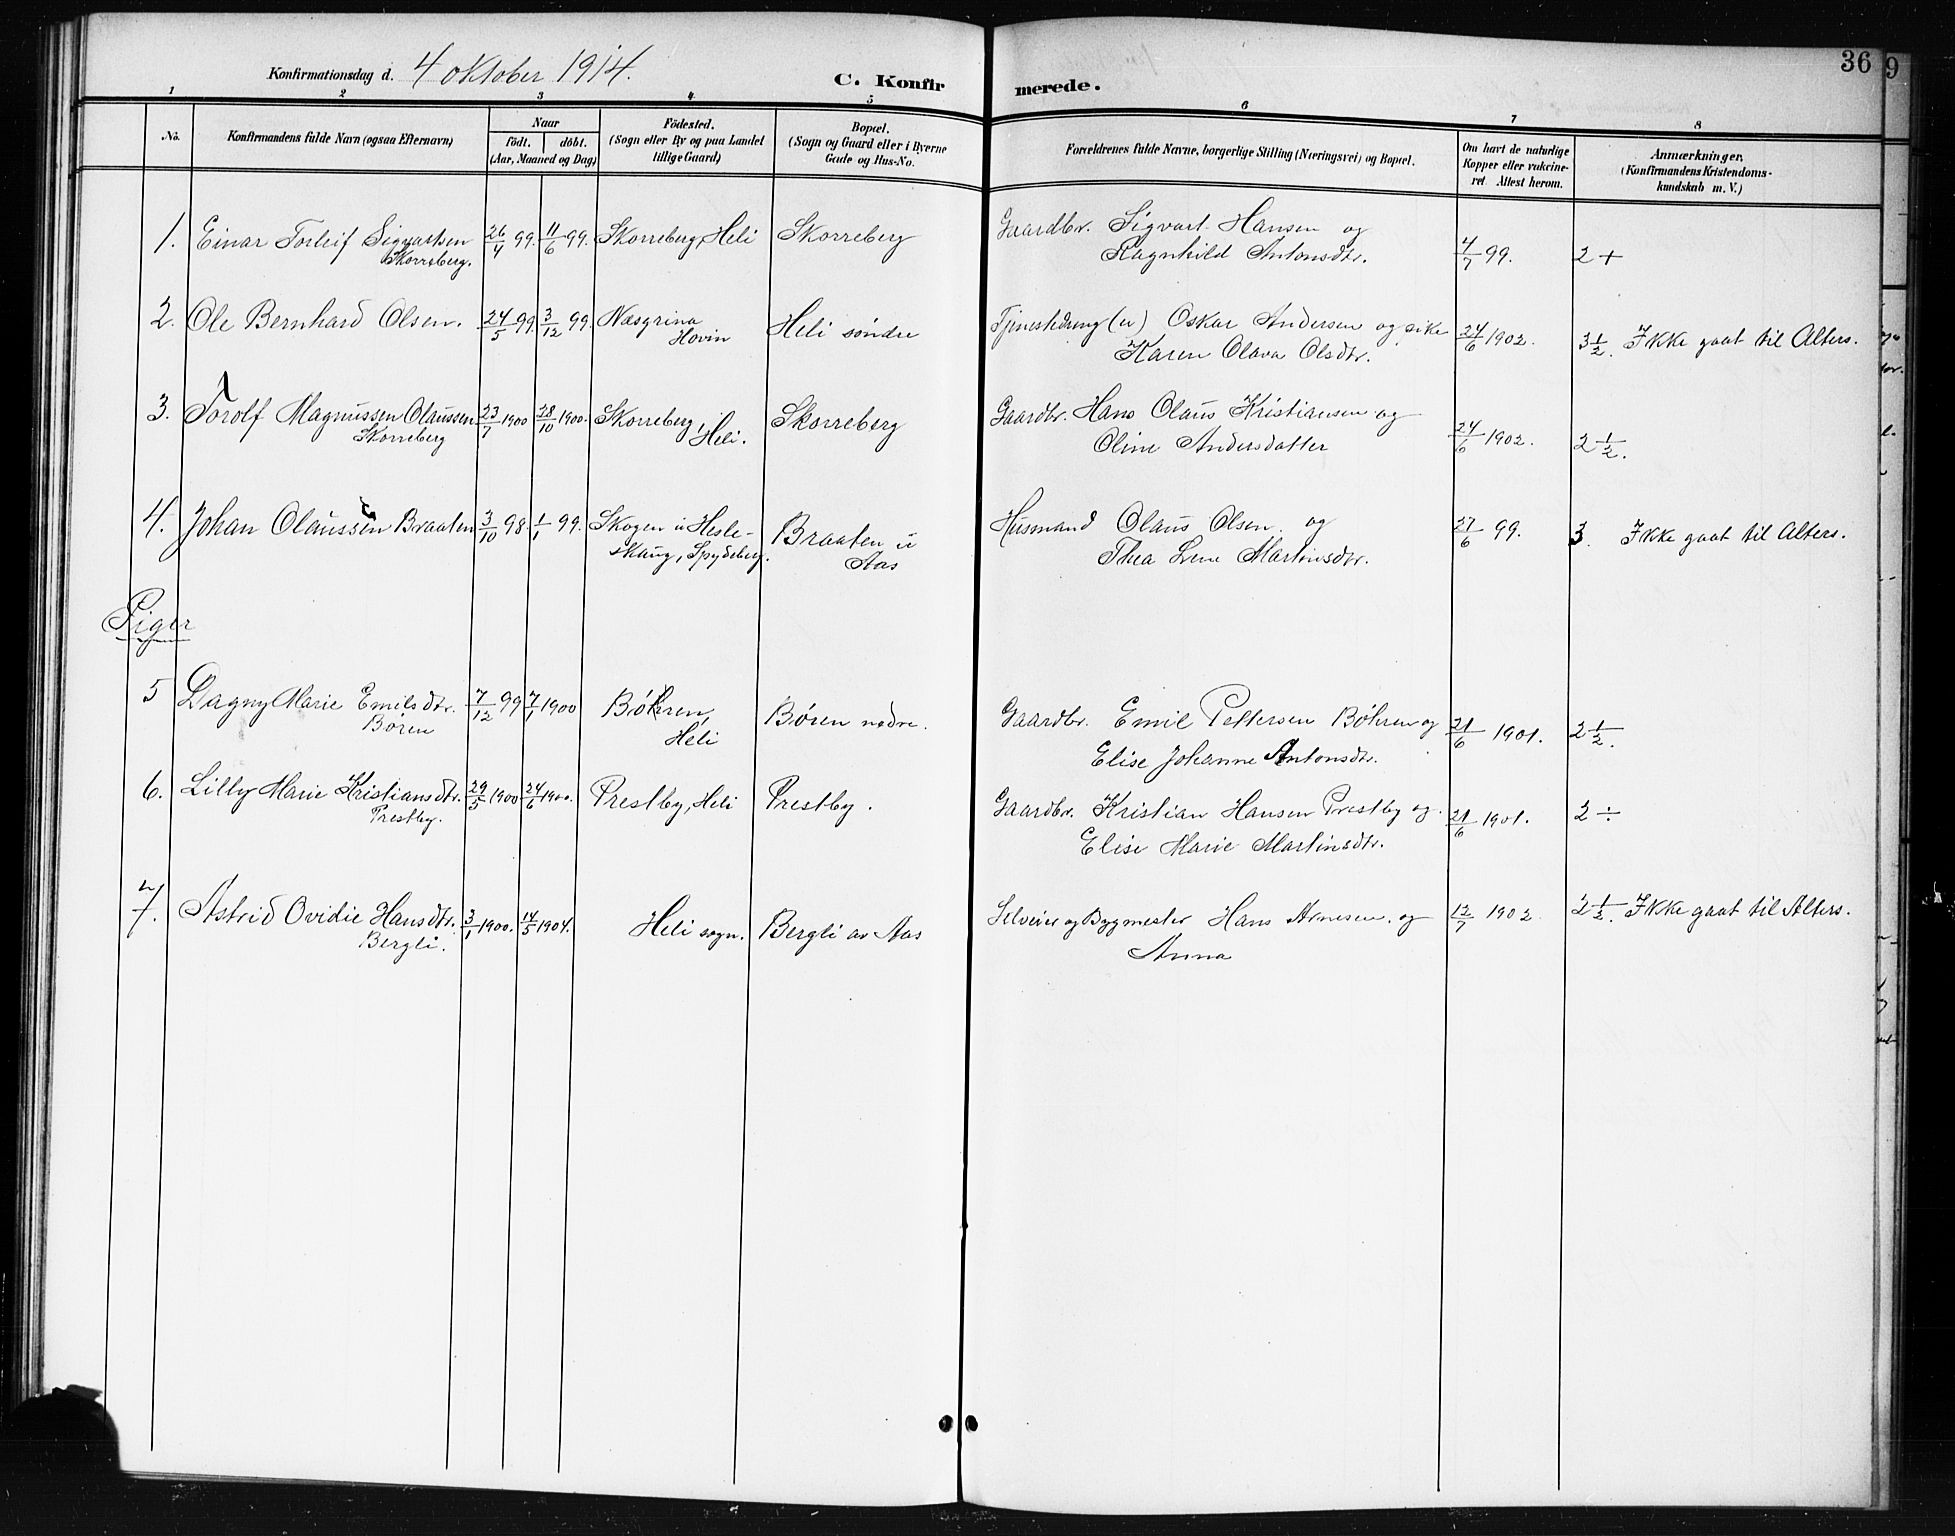 36
9
Konfirmationsdag d. 4 oktober 1914.
C. Konfirmerede.
1 2 3 4 5 6 7 8
No.
Konfirmandens fulde Navn (ogsaa Efternavn)
Naar
födt. döbt.
(Aar, Maaned og Dag)
Födested.
(Sogn eller By og paa Landet
tillige Gaard)
Bopæl.
(Sogn og Gaard eller i Byerne
Gade og Hus-No.
Forældrenes fulde Navne, borgerlige Stilling (Næringsvei) og Bopæl.
Om havt de naturlige
Kopper eller vakcine-
ret Attest herom.
Anmærkninger.
(Konfirmandens Kristendoms-
kundskab m. V.)
1. Einar Torleif Sigvartsen 26/4 99. 11/6 99. Skorreberg, Heli Skorreberg Gaardbr. Sigvart Hansen og
Skorreberg. Ragnhild Antonsdtr. 4/7 99. 2 +
2. Ole Bernhard Olsen. 24/5 99. 3/12 99. Næsgrina Heli söndre Tjenestedreng (er) Oskar Andersen og pike 24/6 1902. 3 1/2. Ikke gaat til Alters.
Hovin Karen Olava Olsdtr.
3. Torolf Magnussen Olaussen 23/7 1900 28/10 1900. Skorreberg, Skorreberg Gaardbr. Hans Olaus Kristiansen og
Skorreberg Heli. Oline Andersdatter 24/6 1902. 2 1/2.
4. Johan Olaussen Braaten 3/10 98. 1/1 99. Skogen u Hesle- Braaten u Husmand Olaus Olsen og 27/6 99. 3. Ikke gaat til Alters.
skaug, Spydeberg. Aas Thea Lene Martinsdtr.
Piger
5 Dagny Marie Emilsdtr. 7/12 99 7/1 1900 Böhren, Børen nedre. Gaardbr. Emil Pettersen Böhren og 21/6 1901. 2 1/2.
Børen Heli Elise Johanne Antonsdtr.
6. Lilly Marie Kristiansdtr. 29/5 1900 24/6 1900. Prestby, Heli Prestby. Gaardbr. Kristian Hansen Prestby og 21/6 1901. 2 ÷
Prestby. Elise Marie Martinsdtr.
7. Astrid Ovidie Hansdtr. 3/1 1900. 14/5 1904. Heli sogn. Bergli av Aas Selveier og Bygmester Hans Arnesen og 12/7 1902. 2 1/2. Ikke gaat til Alters.
Bergli. Anna